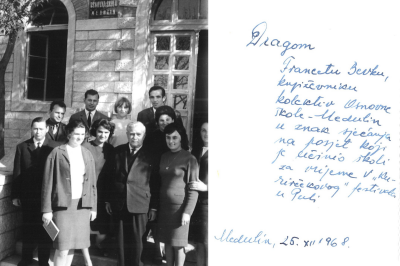 Dragom
Francetu Bevku,
književniku
kolektiv Osnovne
škole - Medulin
u znak sjećanja
na posjet koji
je učinio školi
za vrijeme V "Ku-
rirčekovog" festivala
u Puli
Medulin, 25. XII 1968.